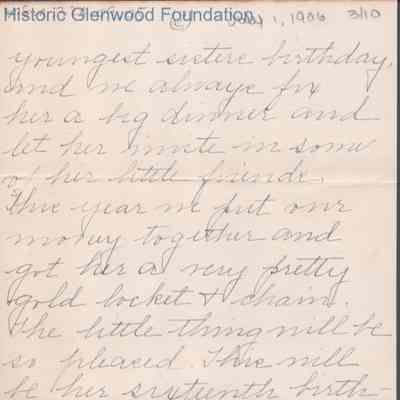 Historic Glenwood Foundation
© July 1, 1906 3/10
youngest sisters birthday,
and we always fix
her a big dinner and
let her invite in some
of her little friends.
This year we put our
money together and
got her a very pretty
gold locket & chain.
The little thing will be
so pleased. This will
be her sixteenth birth-